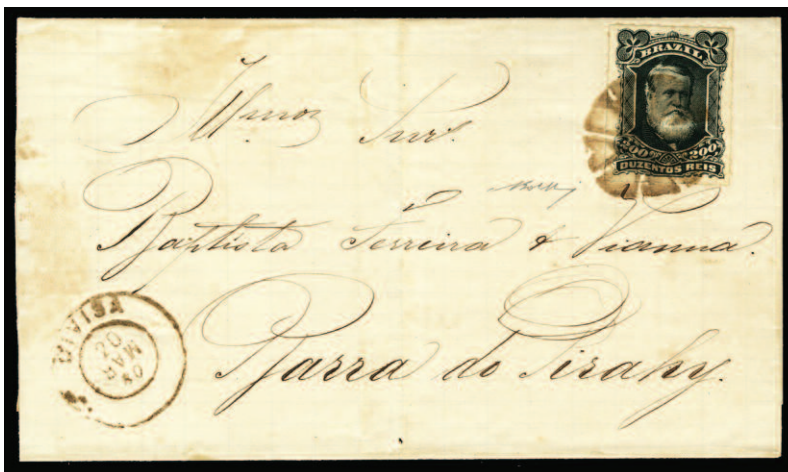 BRAZIL
200 200
DUZENTOS REIS
Illmos Snrs.
Baptista Ferreira & Vianna.
Barra do Pirahy.
20
MAR
80